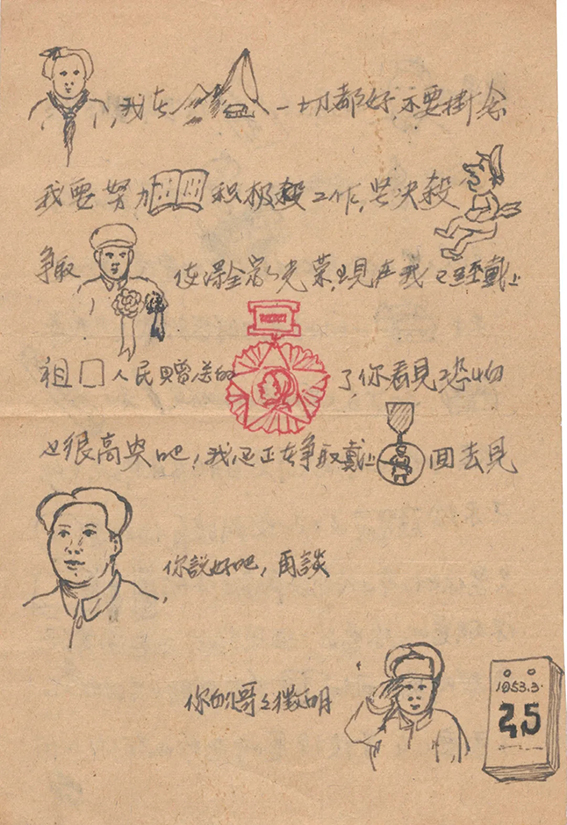 ,我在 一切都好,不要掛念
我要努力 积极 工作,坚决殺
爭取 使得全家光荣現在我已經戴上
祖口人民贈送的 了,你看見恐怕
也很高兴吧!我还正在爭取戴上 回去見
你說好吧,再談
你的哥々 明
1953.3.
25